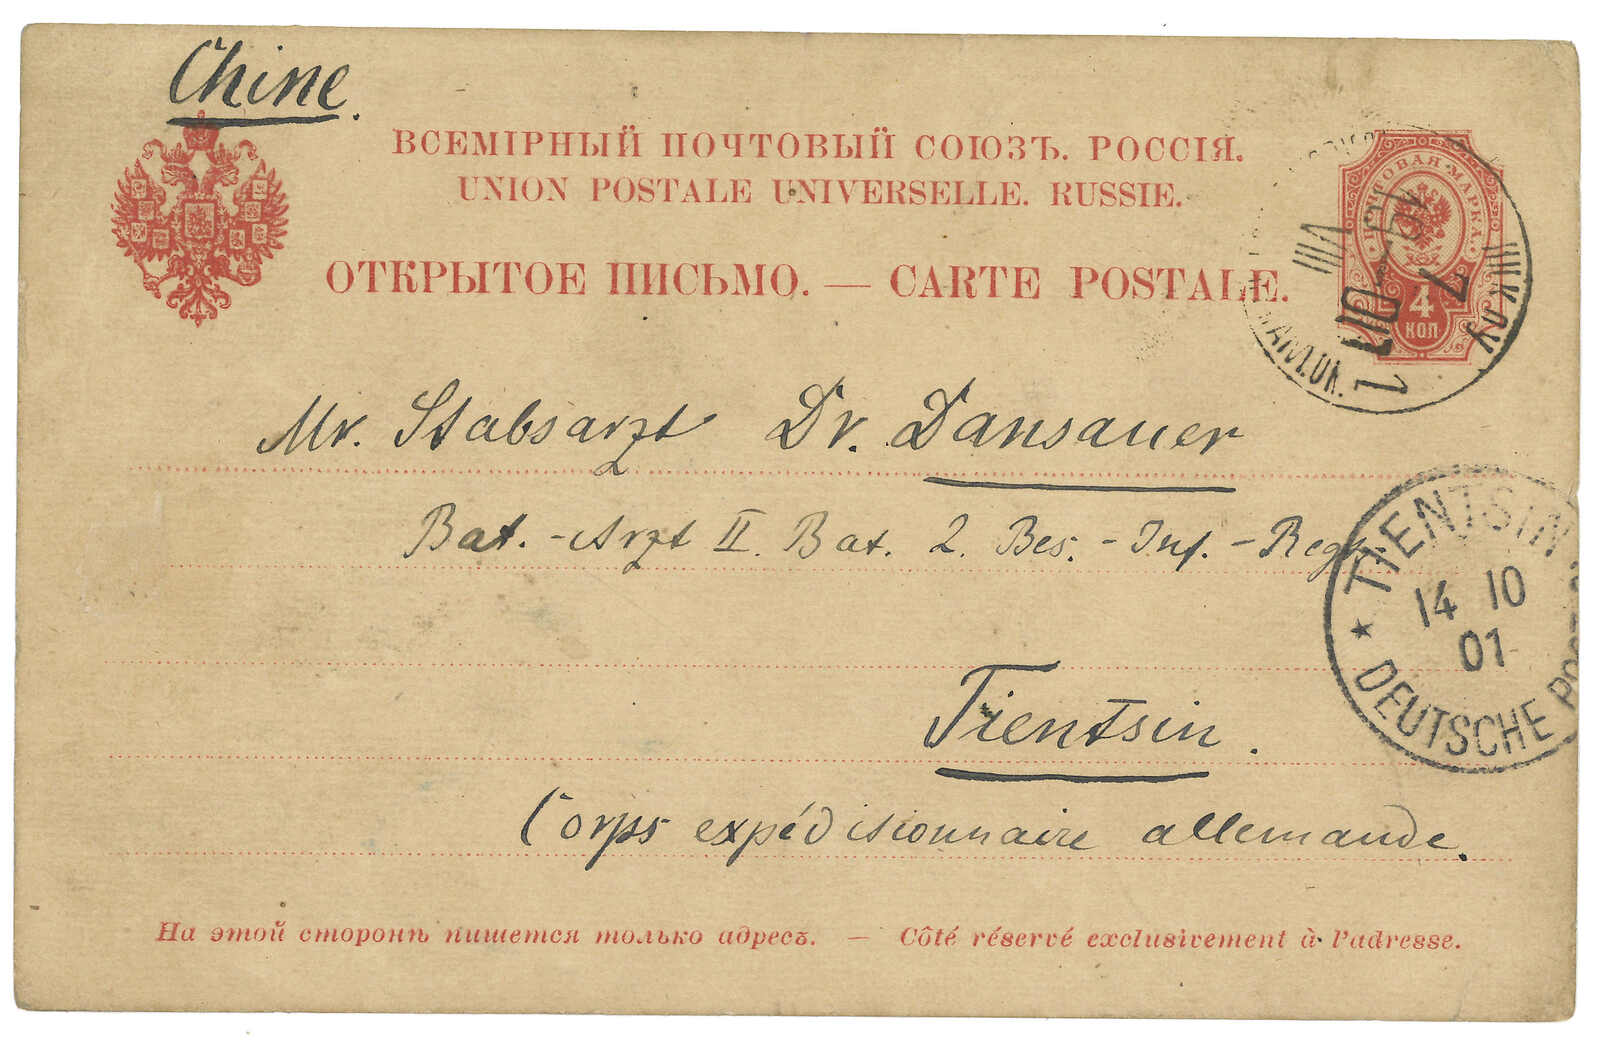 Chine.
ВСЕМІРНЫЙ ПОЧТОВЫЙ СОЮЗЪ. РОССІЯ.
UNION POSTALE UNIVERSELLE. RUSSIE.
ОТКРЫТОЕ ПИСЬМО. — CARTE POSTALE.
ПОЧТОВАЯ МАРКА
4
КОП
VIII
7
1
Mr. Stabsarzt Dr. Dansauer
Bat.-Arzt II. Bat. 2. Bes.-Inf.-Regt.
TIENTSIN
14 10
01
★ DEUTSCHE POST
Tientsin.
Corps expéditionnaire allemande.
На этой сторонѣ пишется только адресъ. — Côté réservé exclusivement à l'adresse.